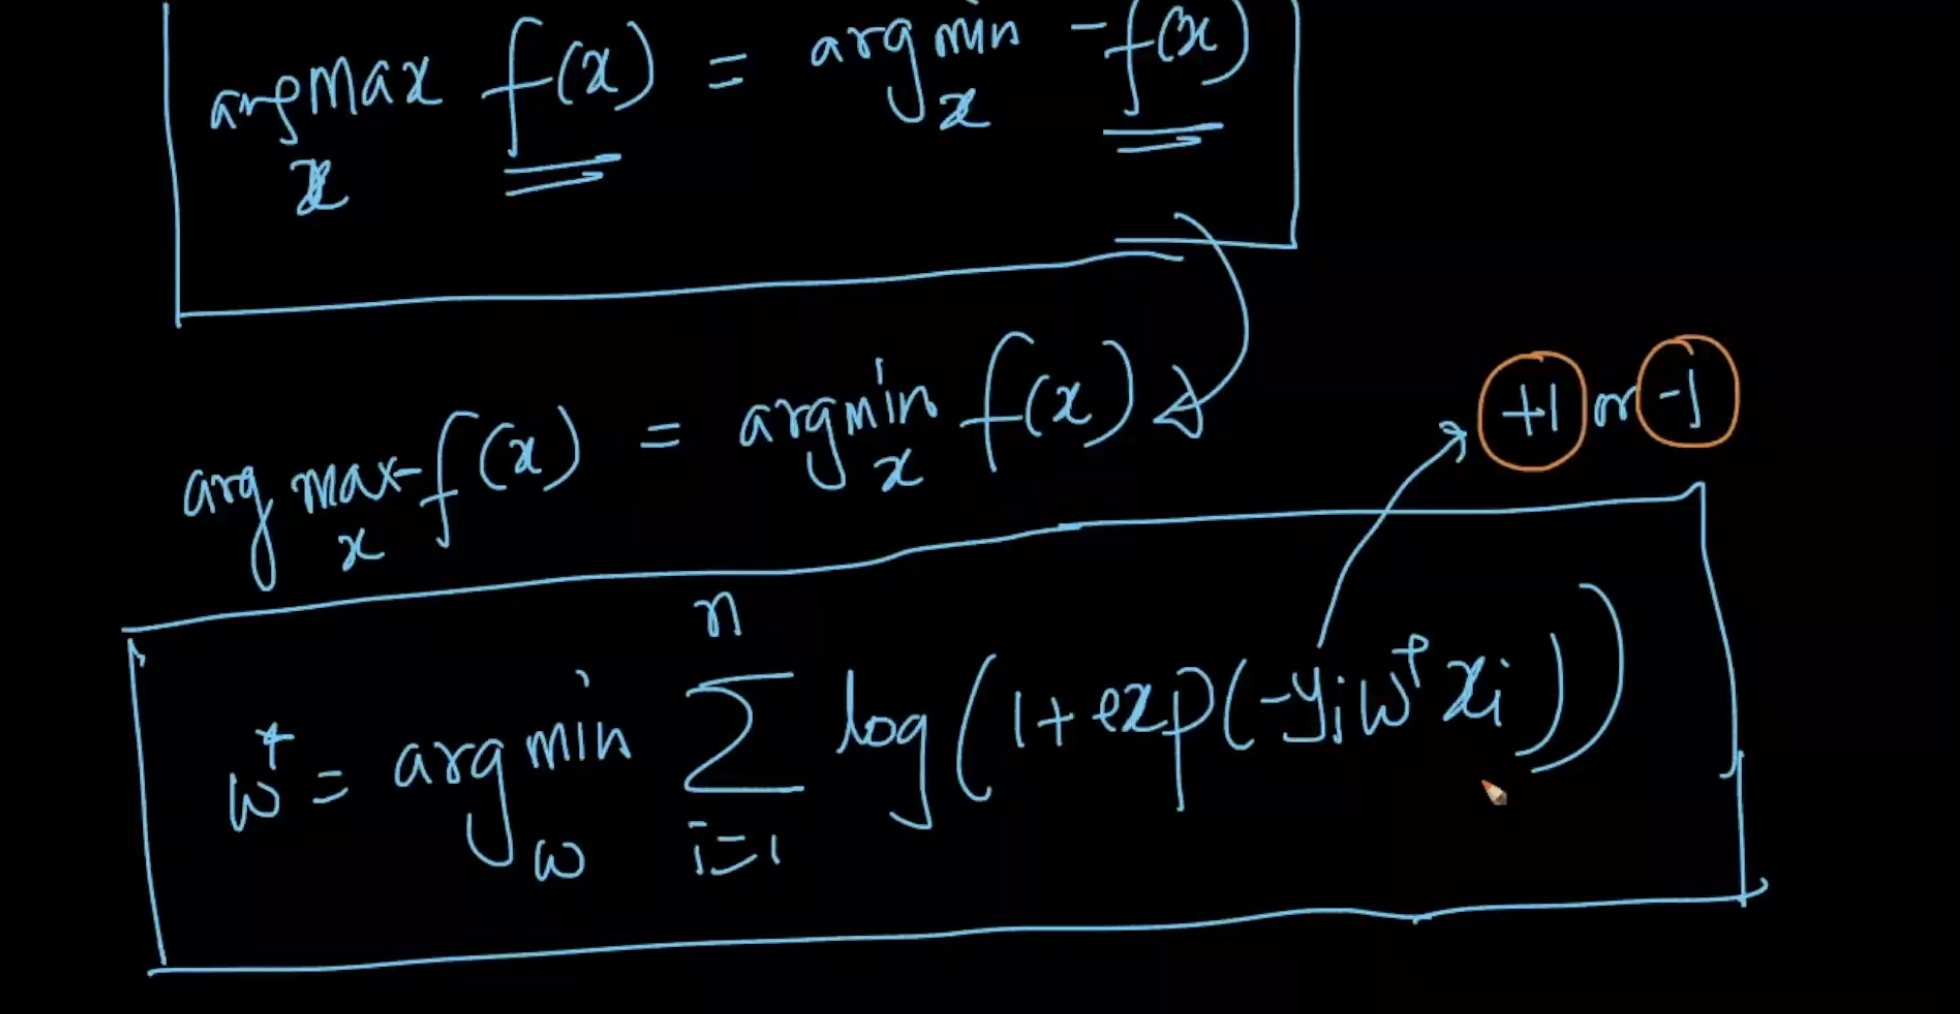 argmax_x f(x) = argmin_x -f(x)
arg max_x -f(x) = argmin_x f(x)
+1 or -1
w* = argmin_w ∑_{i=1}^{n} log(1+exp(-y_i w^T x_i))